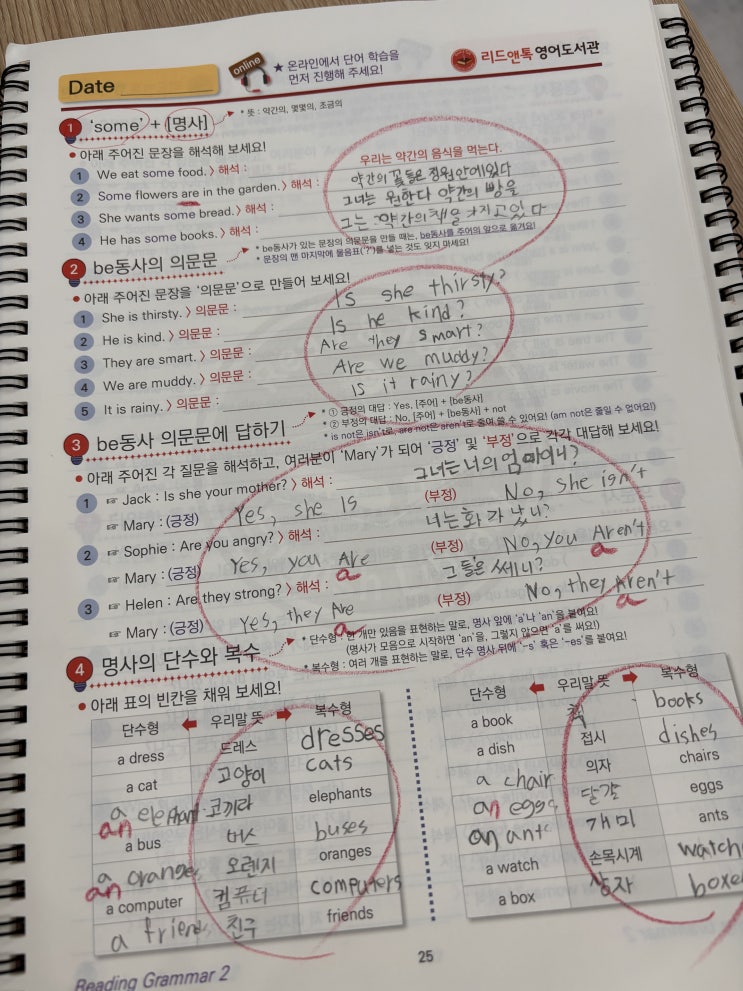 Date
online
★ 온라인에서 단어 학습을
먼저 진행해 주세요!
리드앤톡 영어도서관
1 'some' + [명사]
* 뜻 : 약간의, 몇몇의, 조금의
• 아래 주어진 문장을 해석해 보세요!
1 We eat some food. > 해석 : 우리는 약간의 음식을 먹는다.
2 Some flowers are in the garden. > 해석 : 약간의 꽃들은 정원안에있다
3 She wants some bread. > 해석 : 그녀는 원한다 약간의 빵을
4 He has some books. > 해석 : 그는 약간의 책을 가지고있다
2 be동사의 의문문
* be동사가 있는 문장의 의문문을 만들 때는, be동사를 주어의 앞으로 옮겨요!
* 문장의 맨 마지막에 물음표('?')를 넣는 것도 잊지 마세요!
• 아래 주어진 문장을 '의문문'으로 만들어 보세요!
1 She is thirsty. > 의문문 : Is she thirsty?
2 He is kind. > 의문문 : Is he kind?
3 They are smart. > 의문문 : Are they smart?
4 We are muddy. > 의문문 : Are we muddy?
5 It is rainy. > 의문문 : Is it rainy?
3 be동사 의문문에 답하기
* ① 긍정의 대답 : Yes, [주어] + [be동사]
* ② 부정의 대답 : No, [주어] + [be동사] + not
* is not은 isn't로, are not은 aren't로 줄여 쓸 수 있어요! (am not은 줄일 수 없어요!)
• 아래 주어진 각 질문을 해석하고, 여러분이 'Mary'가 되어 '긍정' 및 '부정'으로 각각 대답해 보세요!
1 ☞ Jack : Is she your mother? > 해석 : 그녀는 너의 엄마이니?
☞ Mary : (긍정) Yes, she Is (부정) No, she isn't
2 ☞ Sophie : Are you angry? > 해석 : 너는 화가 났니?
☞ Mary : (긍정) Yes, you Are a (부정) No, you Aren't a
3 ☞ Helen : Are they strong? > 해석 : 그들은 쎄니?
☞ Mary : (긍정) Yes, they Are a (부정) No, they Aren't a
4 명사의 단수와 복수
* 단수형 : 한 개만 있음을 표현하는 말로, 명사 앞에 'a'나 'an'을 붙여요!
(명사가 모음으로 시작하면 'an'을, 그렇지 않으면 'a'를 써요!)
* 복수형 : 여러 개를 표현하는 말로, 단수 명사 뒤에 '-s' 혹은 '-es'를 붙여요!
• 아래 표의 빈칸을 채워 보세요!
단수형 우리말 뜻 복수형
a dress 드레스 dresses
a cat 고양이 cats
a elephant an 코끼리 elephants
a bus 버스 buses
a orange an 오렌지 oranges
a computer 컴퓨터 computers
a friend 친구 friends
단수형 우리말 뜻 복수형
a book 책 books
a dish 접시 dishes
a chair 의자 chairs
an eggs 달걀 eggs
an ant 개미 ants
a watch 손목시계 watch
a box 상자 boxe
Reading Grammar 2
25